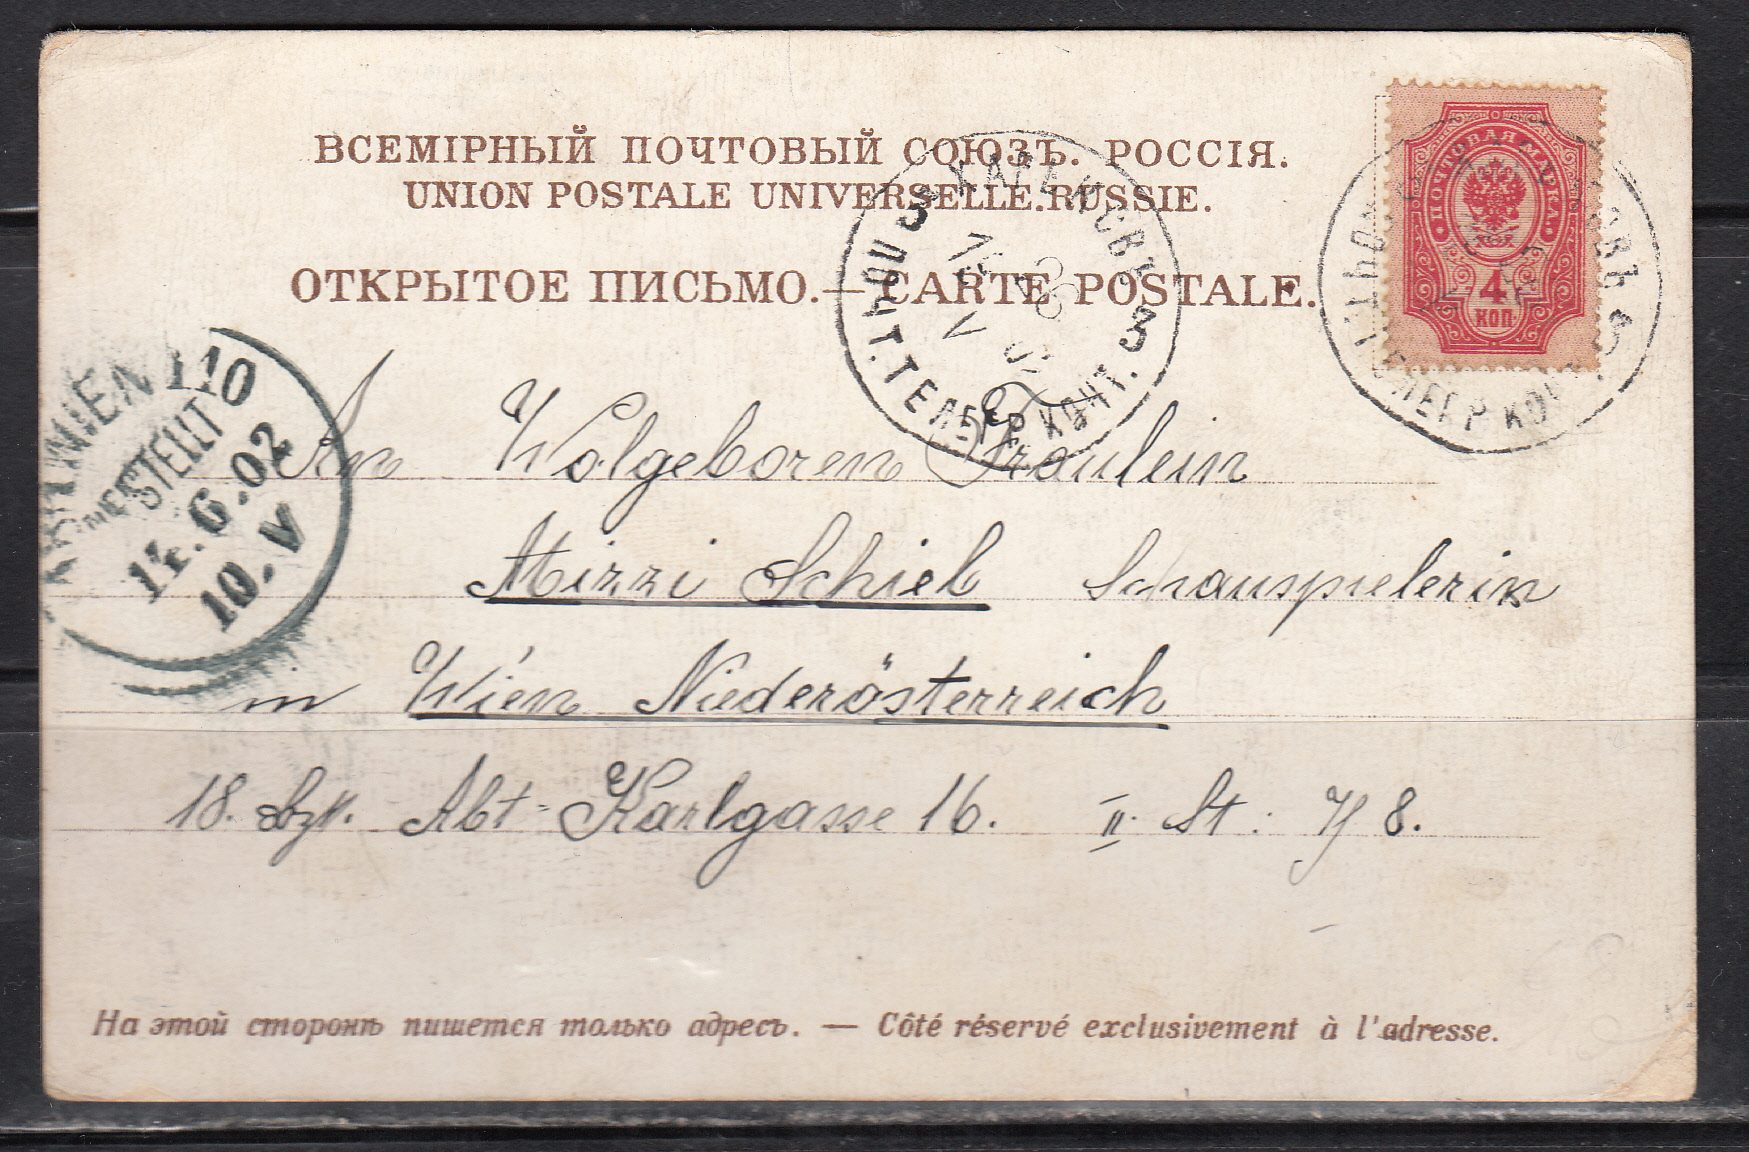 ВСЕМІРНЫЙ ПОЧТОВЫЙ СОЮЗЪ. РОССІЯ.
UNION POSTALE UNIVERSELLE.RUSSIE.
ОТКРЫТОЕ ПИСЬМО.— CARTE POSTALE.
ПОЧТОВАЯ МАРКА
4
КОП.
ПОЧТ. ТЕЛЕГР. КОНТ.
WIEN 110
BESTELLT
14.6.02
10.V
An Wolgeboren Fräulein
Mizzi Schieb Schauspielerin
in Wien Niederösterreich
18. Bzk. Abt-Karlgasse 16. II. St: 8.
На этой сторонѣ пишется только адресъ. — Côté réservé exclusivement à l'adresse.